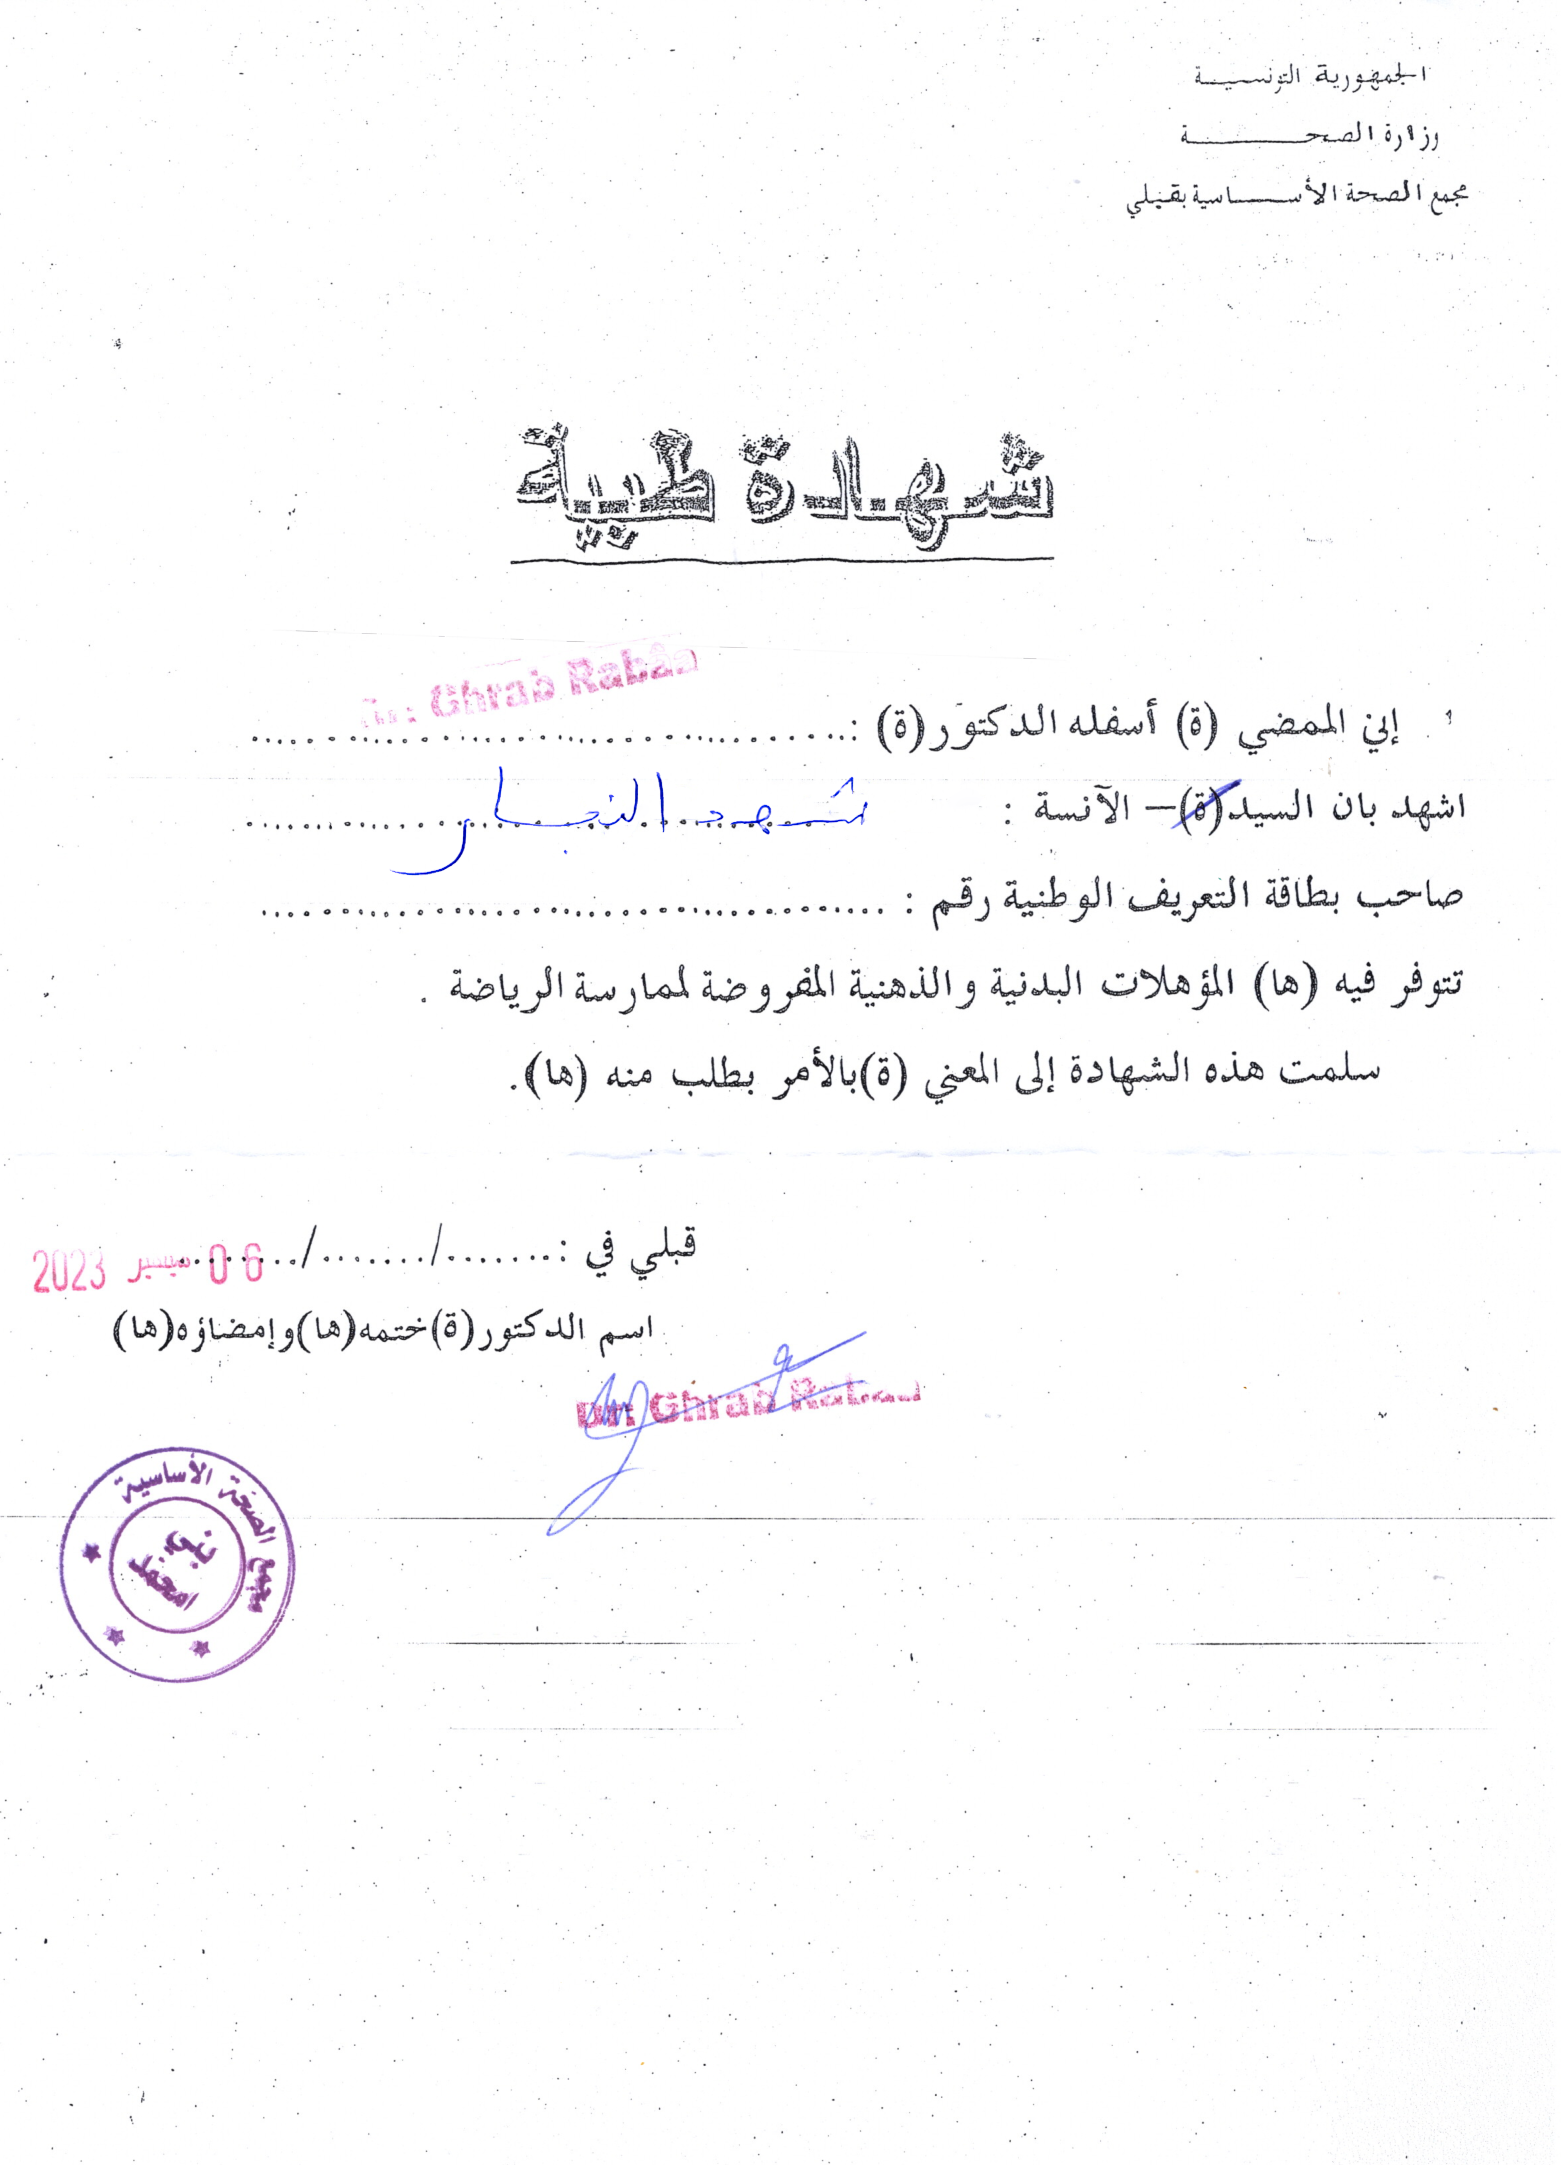 الجمهورية التونسية
وزارة الصحة
مجمع الصحة الأساسية بقبلي
شهادة طبية
Dr: Ghrab Rabâa
إني الممضي (ة) أسفله الدكتور(ة) :
اشهد بان السيد(ة)– الآنسة : شهد النجار
صاحب بطاقة التعريف الوطنية رقم :
تتوفر فيه (ها) المؤهلات البدنية والذهنية المفروضة لممارسة الرياضة .
سلمت هذه الشهادة إلى المعني (ة)بالأمر بطلب منه (ها).
قبلي في : ......../......../........
06 سبتمبر 2023
اسم الدكتور(ة)ختمه(ها)وإمضاؤه(ها)
Dr: Ghrab Rabâa
مجمع الصحة الأساسية